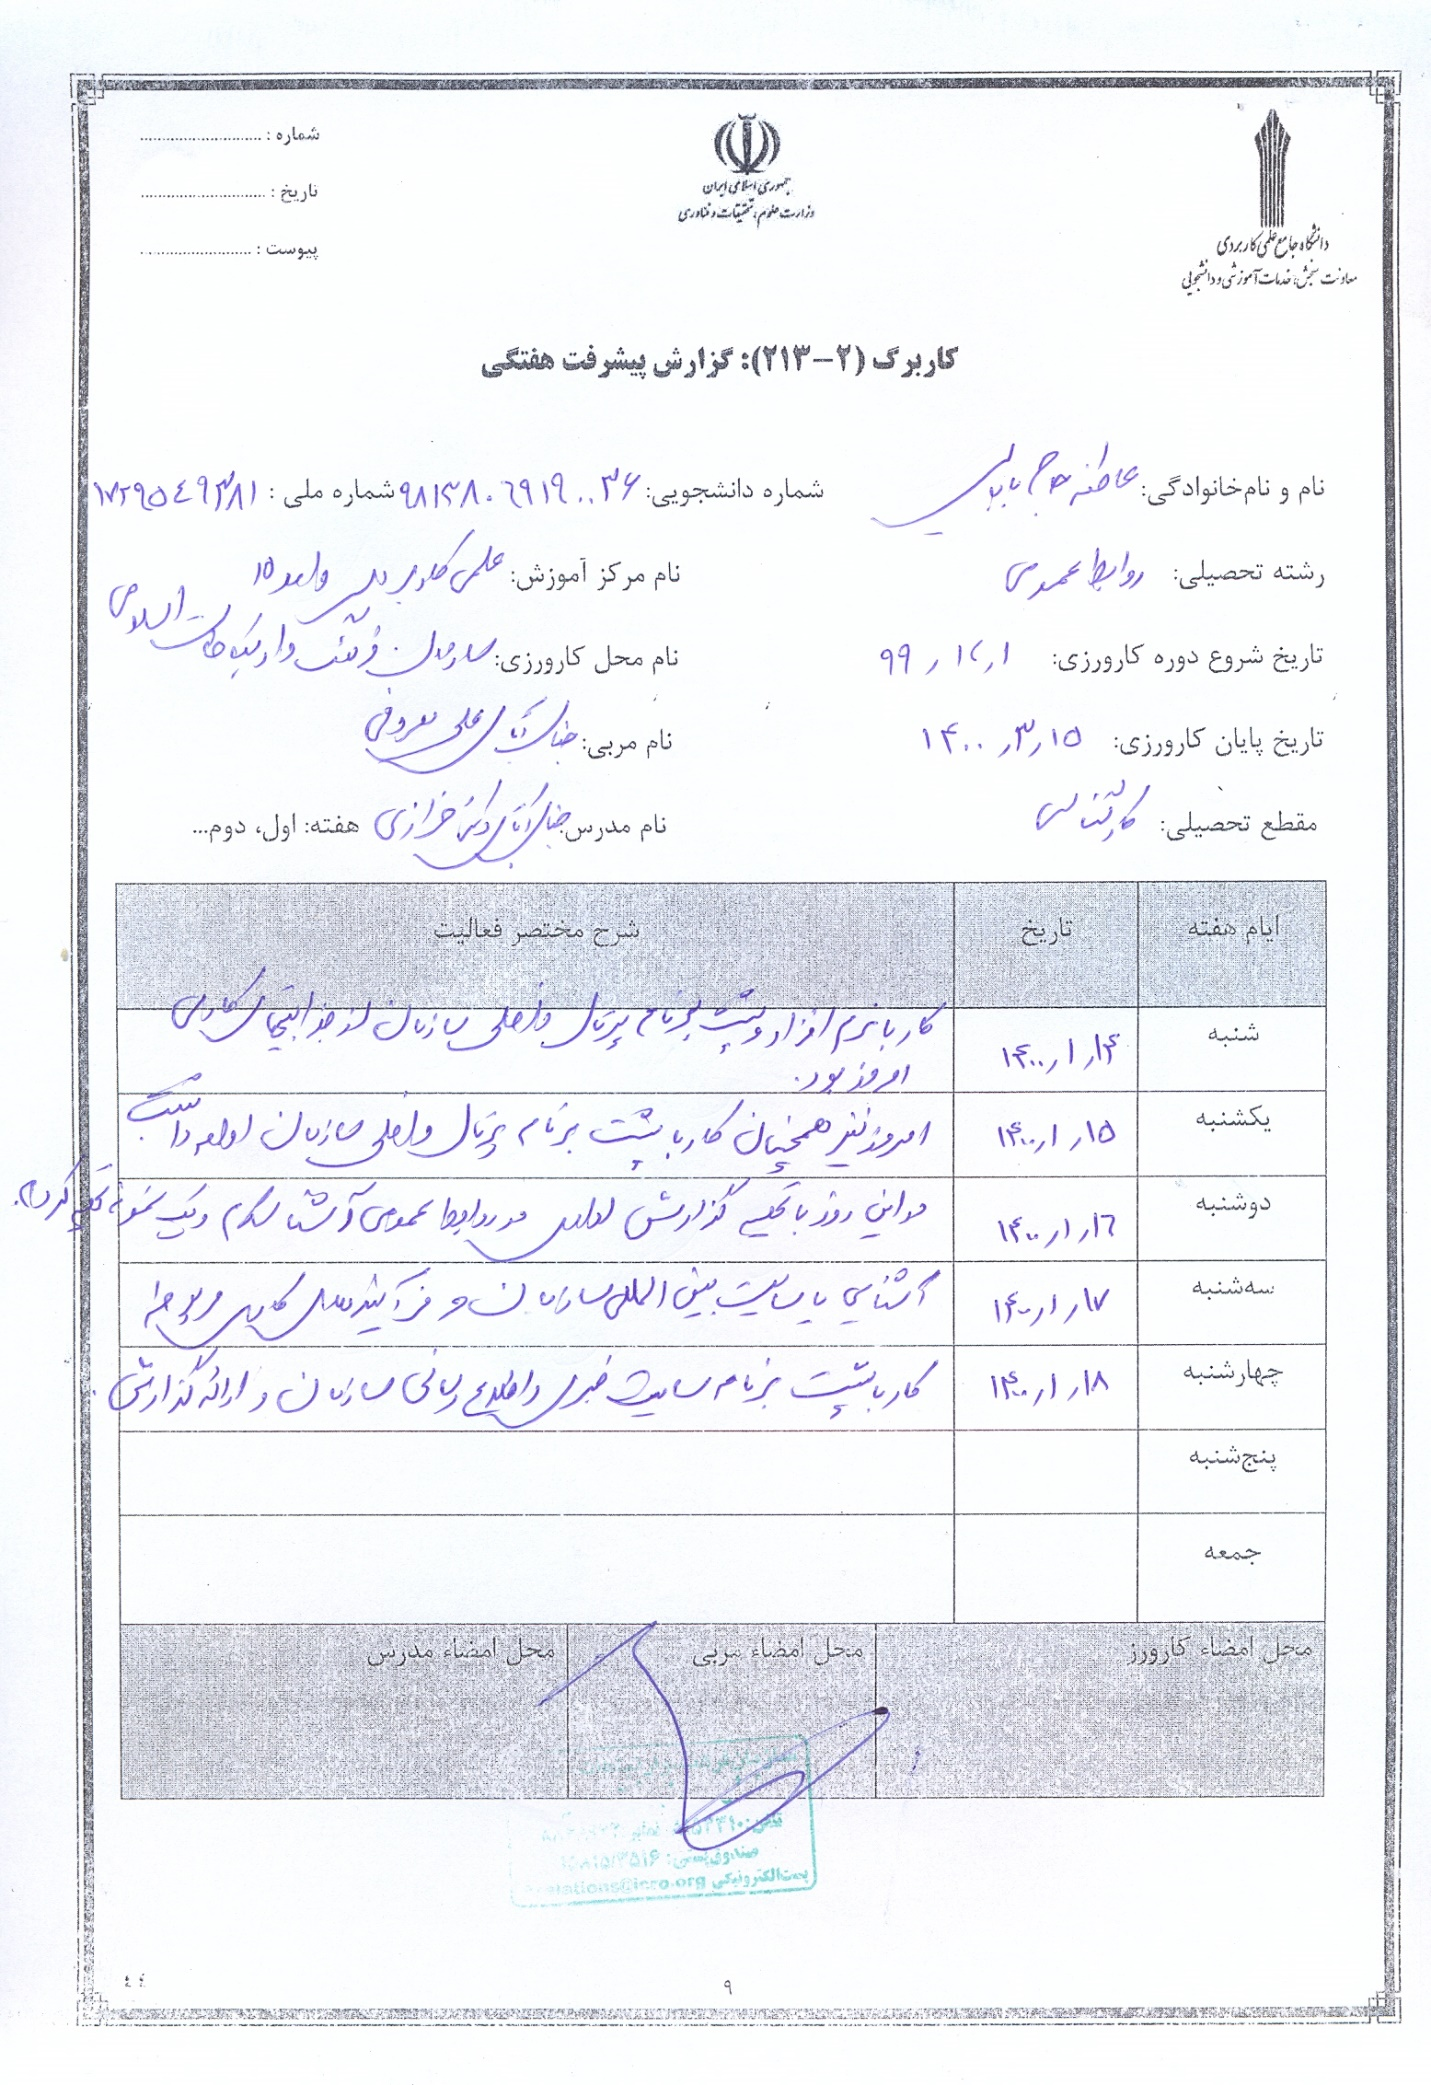 شماره : ............................
تاریخ : ............................
پیوست : ............................
جمهوری اسلامی ایران
وزارت علوم، تحقیقات و فناوری
دانشگاه جامع علمی کاربردی
معاونت سنجش، خدمات آموزشی و دانشجویی
کاربرگ (۲-۲۱۳): گزارش پیشرفت هفتگی
نام و نام‌خانوادگی: عاطفه حاج بابایی شماره دانشجویی: شماره ملی :
رشته تحصیلی: روابط عمومی نام مرکز آموزش: علمی کاربردی واحد ۱۵
تاریخ شروع دوره کارورزی: نام محل کارورزی: سازمان فرهنگ و ارتباطات اسلامی
تاریخ پایان کارورزی: ۱۴۰۰/۳/۱۵ نام مربی: جناب آقای علی معروفی
مقطع تحصیلی: کارشناسی نام مدرس: جناب آقای دکتر خرازی هفته: اول، دوم...
ایام هفته تاریخ شرح مختصر فعالیت
شنبه ۱۴۰۰/۱/۱۴ کار با نرم افزار و پشت برنامه پرتال داخلی سازمان از جذابیتهای کاری
امروز بود.
یکشنبه ۱۴۰۰/۱/۱۵ امروز نیز همچنان کار با پشت برنامه پرتال داخلی سازمان ادامه داشت
دوشنبه ۱۴۰۰/۱/۱۶ در این روز با تهیه گزارش اداری در روابط عمومی آشنا شدم و یک نمونه تهیه کردم.
سه‌شنبه ۱۴۰۰/۱/۱۷ آشنایی با سایت بین المللی سازمان و فرآیندهای کاری مربوطه
چهارشنبه ۱۴۰۰/۱/۱۸ کار با پشت برنامه سایت خبری و اطلاع رسانی سازمان و ارائه گزارش.
پنج‌شنبه
جمعه
محل امضاء کارورز محل امضاء مربی محل امضاء مدرس
صندوق پستی:
پست الکترونیکی
۹
٤٤